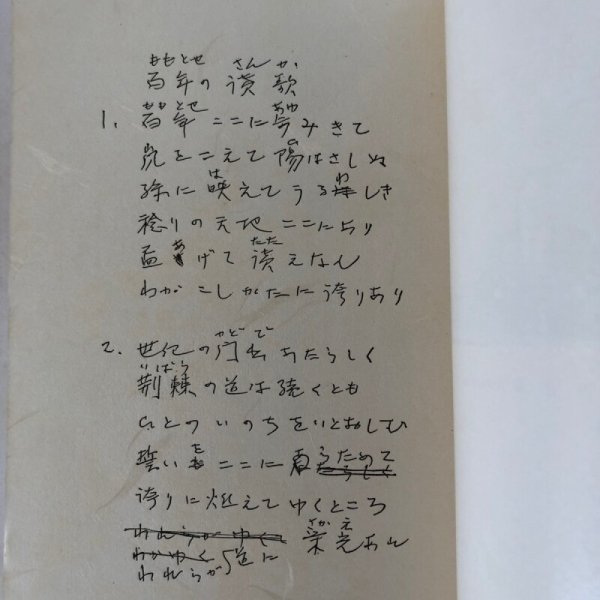 百年の讃歌
ももとせ さんか
1. 百年ここに歩みきて
ももとせ あゆ
をこえて陽はさしぬ
緑に映えてうるわしき
は
稔りの天地ここにあり
盃あげて讃えなん
あ たた
わがこしかたに誇りあり
2. 世紀の門出あたらしく
かどで
荆棘の道は続くとも
いばら
ひとのいのちをいとおしむ
誓いをここに
誇りに燃えてゆくところ
われらが道に栄光あれ
さかえ